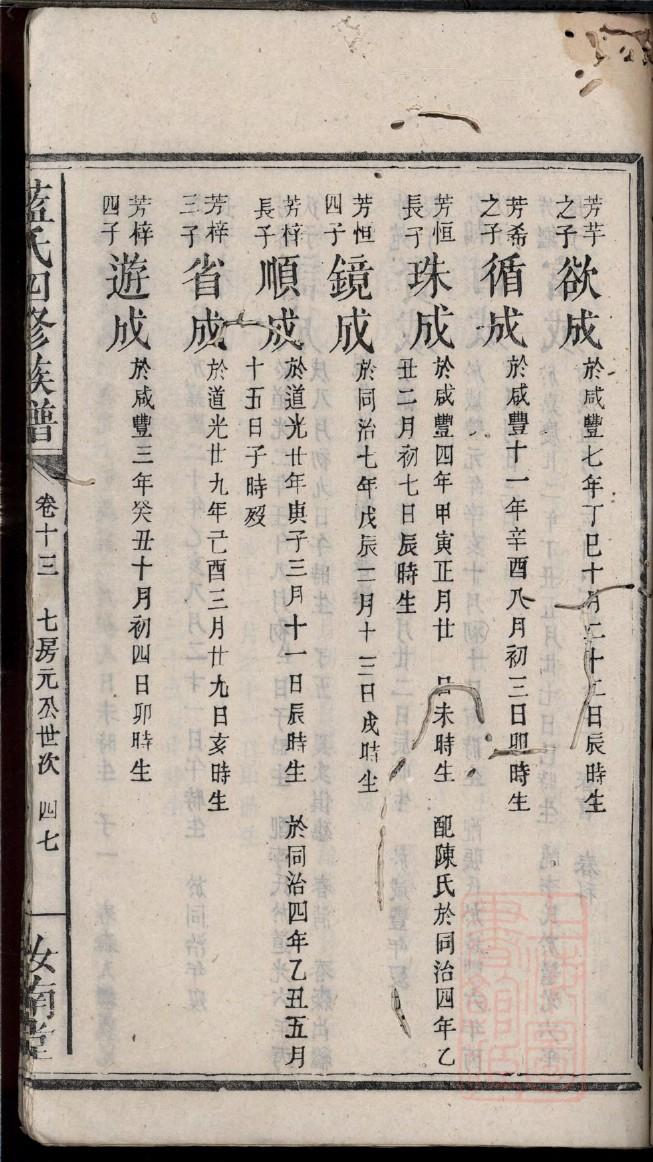 芳芋之子 欲成 於咸豐七年丁巳十月二十二日辰時生
芳希之子 循成 於咸豐十一年辛酉八月初三日卯時生
芳恒長子 珠成 於咸豐四年甲寅正月廿 日未時生 配陳氏於同治四年乙
丑二月初七日辰時生
芳恒四子 鏡成 於同治七年戊辰三月十三日戌時生
芳梓長子 順成 於道光廿年庚子三月十一日辰時生 於同治四年乙丑五月
十五日子時歿
芳梓三子 省成 於道光廿九年己酉三月廿九日亥時生
芳梓四子 遊成 於咸豐三年癸丑十月初四日卯時生
藍氏四修族譜 卷十三 七房元公世次 四七 汝南堂